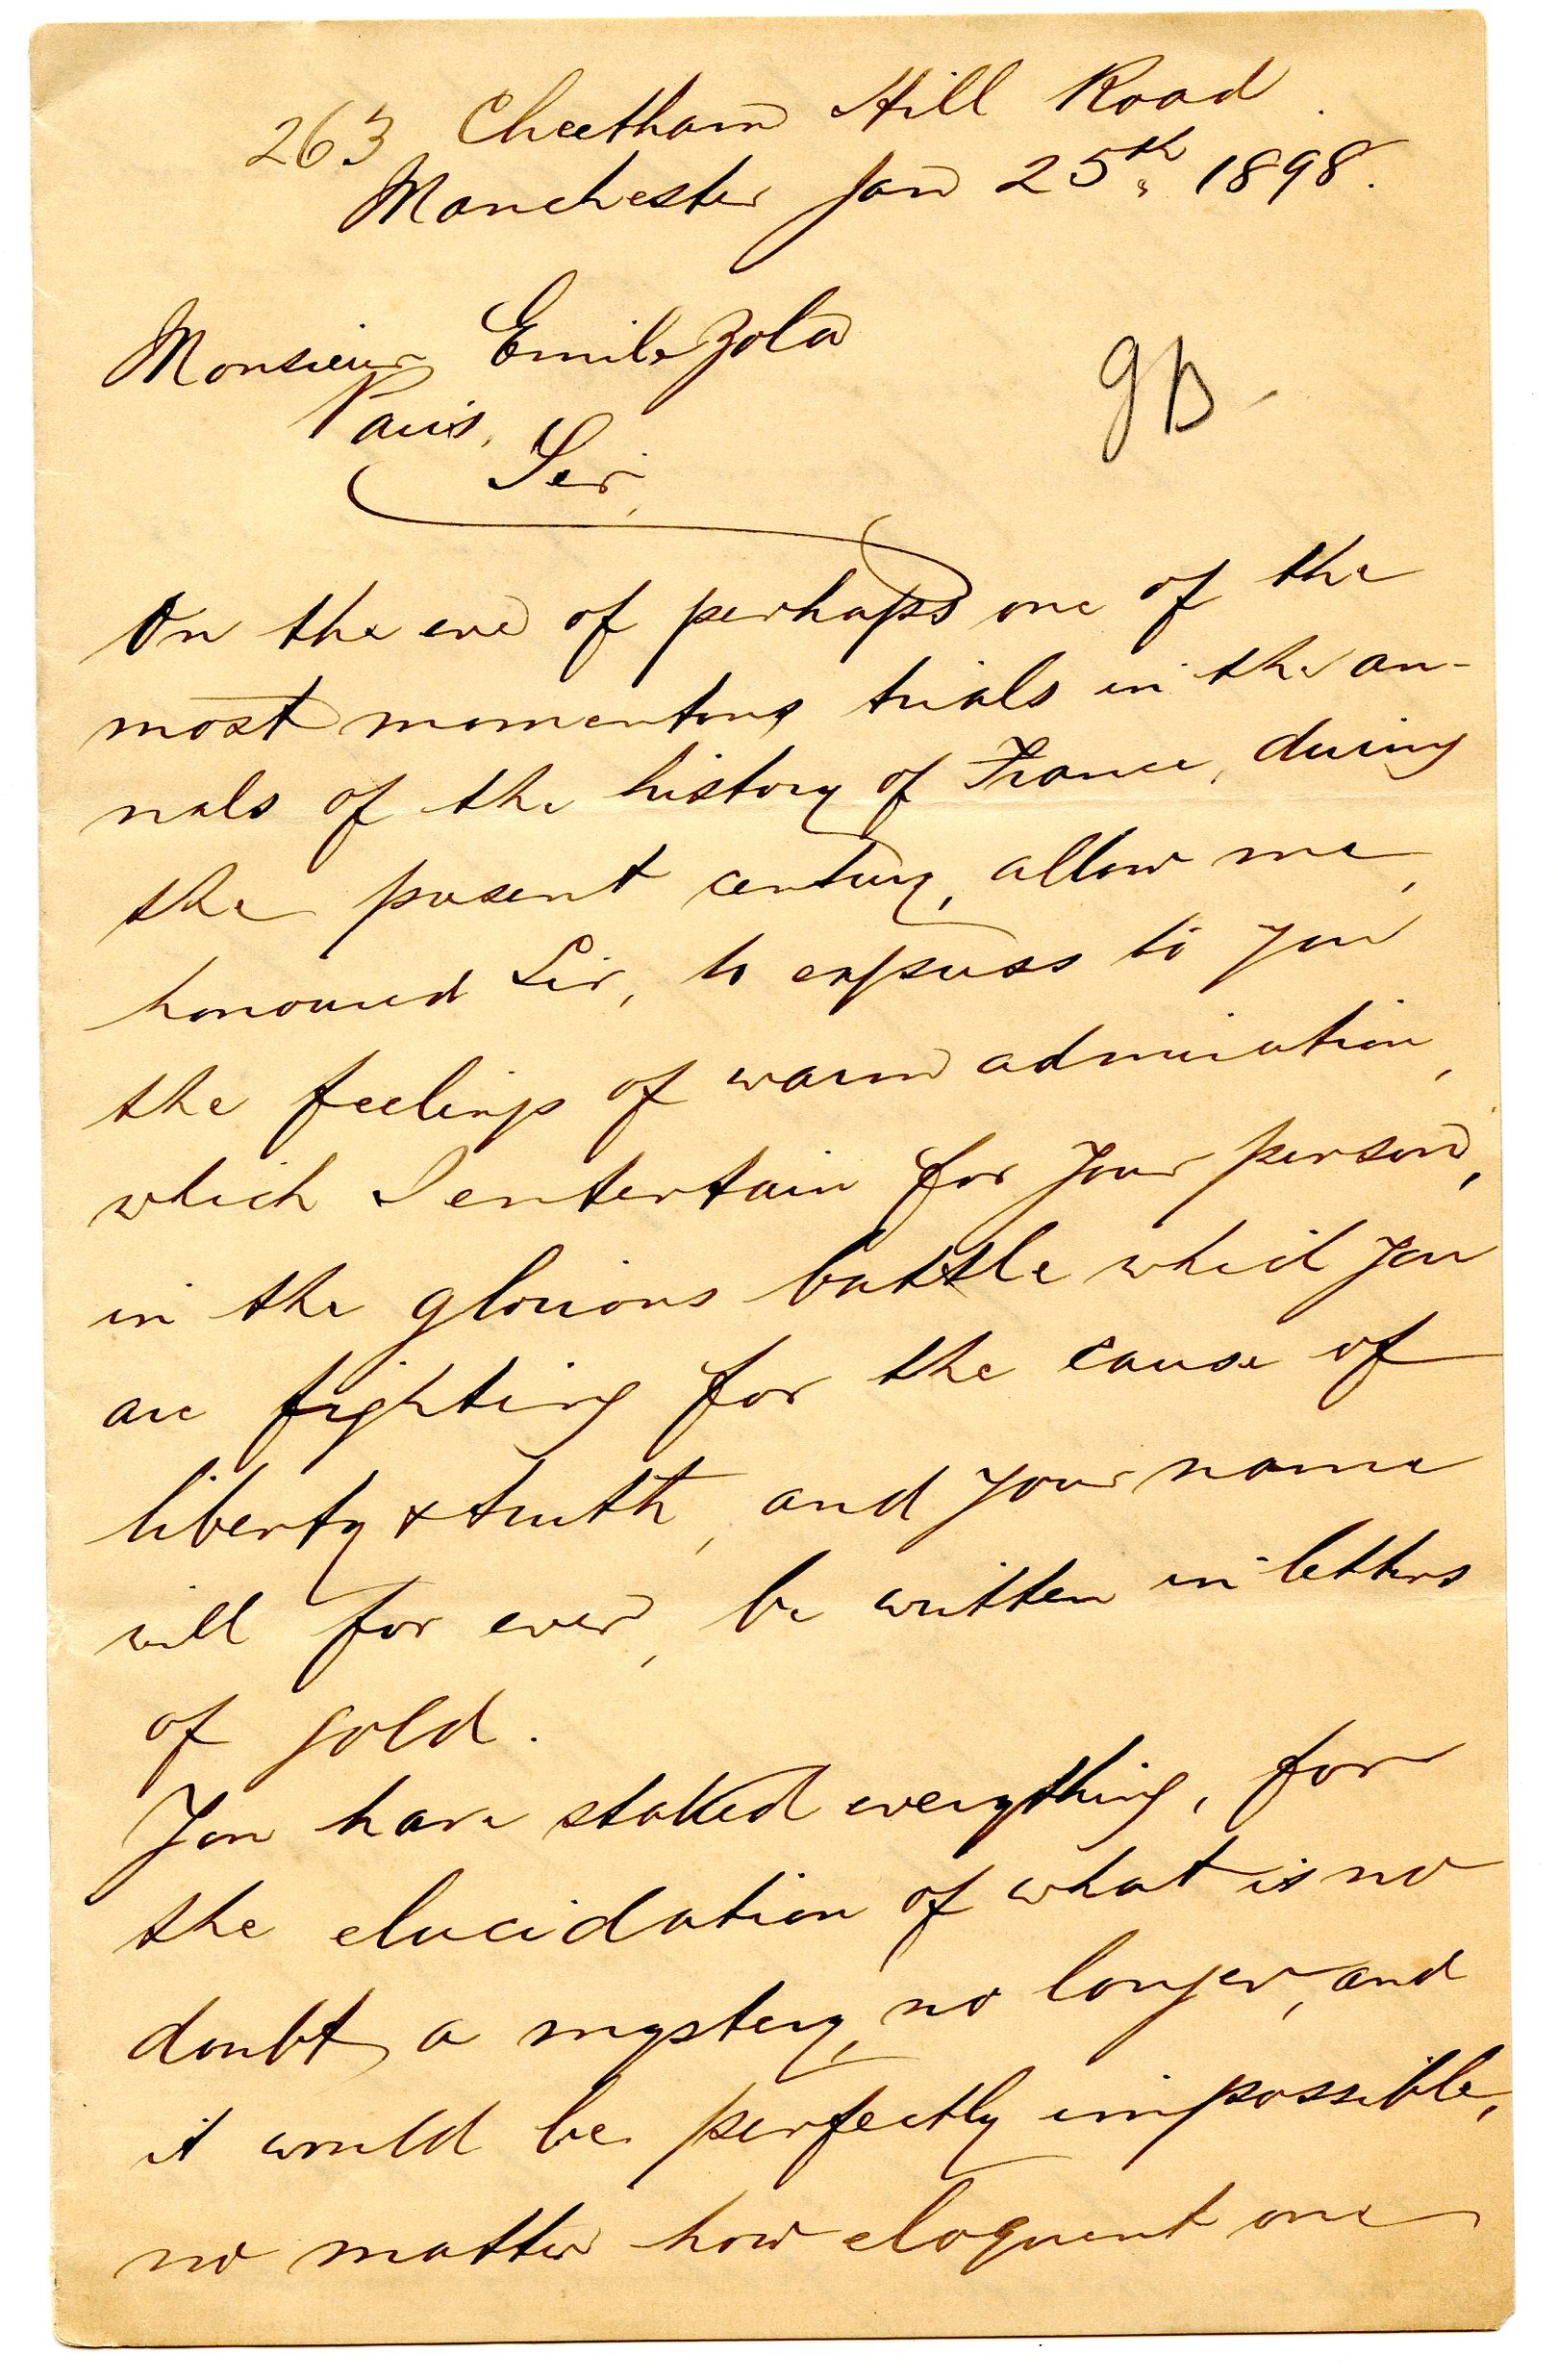 263 Cheetham Hill Road
Manchester Jan 25th 1898.
Monsieur Emile Zola
GB
Paris,
Sir,
On the eve of perhaps one of the
most momentous trials in the an-
nals of the history of France, during
the present century, allow me,
honoured Sir, to express to you
the feelings of warm admiration,
which I entertain for your person,
in the glorious battle which you
are fighting for the cause of
liberty & truth, and your name
will for ever, be written in letters
of gold.
You have staked everything, for
the elucidation of what is no
doubt, a mystery, no longer, and
it would be perfectly impossible,
no matter how eloquent one